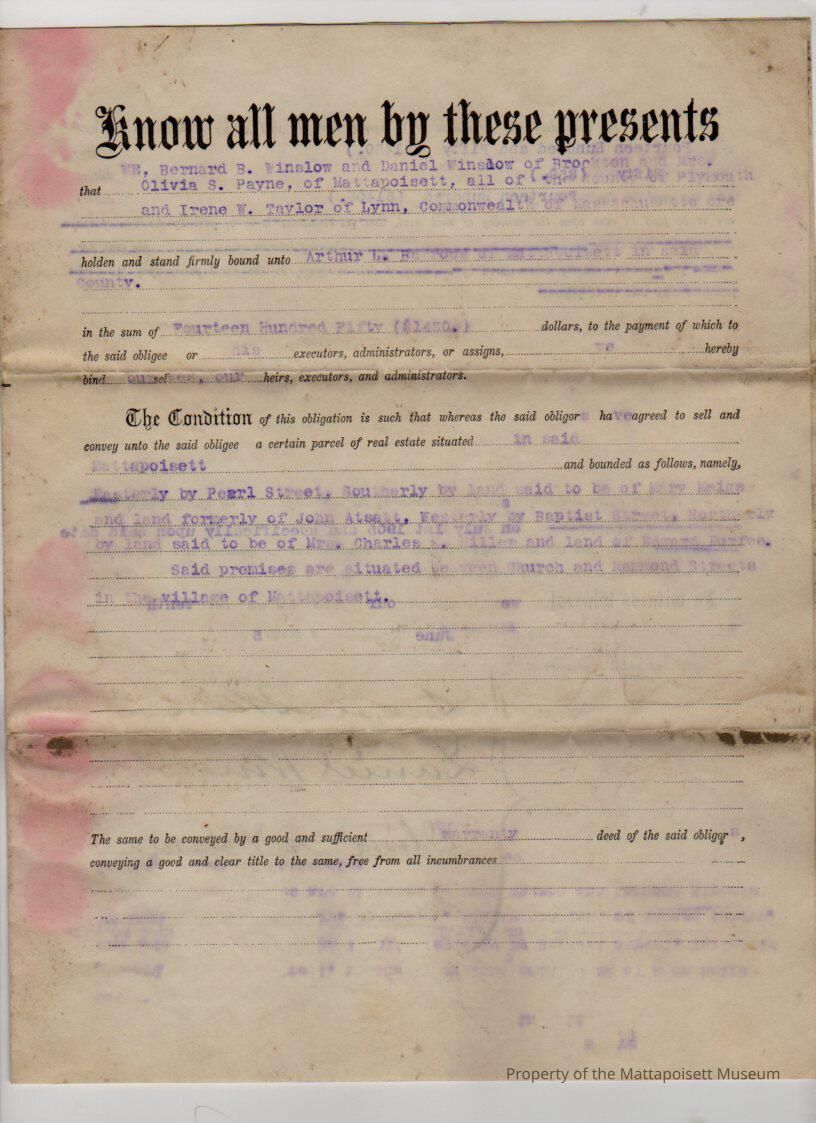 Know all men by these presents
that WE, Bernard B. Winslow and Daniel Winslow of Brockton and Mrs.
Olivia S. Payne, of Mattapoisett, all of the County of Plymouth
and Irene W. Taylor of Lynn, Commonwealth of Massachusetts are
holden and stand firmly bound unto Arthur L. of Mattapoisett in said
County.
in the sum of Fourteen Hundred Fifty ($1450.) dollars, to the payment of which to
the said obligee or his executors, administrators, or assigns, we hereby
bind ourselves, our heirs, executors, and administrators.
The Condition of this obligation is such that whereas the said obligors have agreed to sell and
convey unto the said obligee a certain parcel of real estate situated in said
Mattapoisett and bounded as follows, namely,
Easterly by Pearl Street, Southerly by land said to be of Mary Meigs
and land formerly of John Atsatt, Westerly by Baptist Street, Northerly
by land said to be of Mrs. Charles Miller and land of Edward Durfee.
Said premises are situated between Church and Hammond Streets
in the village of Mattapoisett.
The same to be conveyed by a good and sufficient warranty deed of the said obligors,
conveying a good and clear title to the same, free from all incumbrances
Property of the Mattapoisett Museum